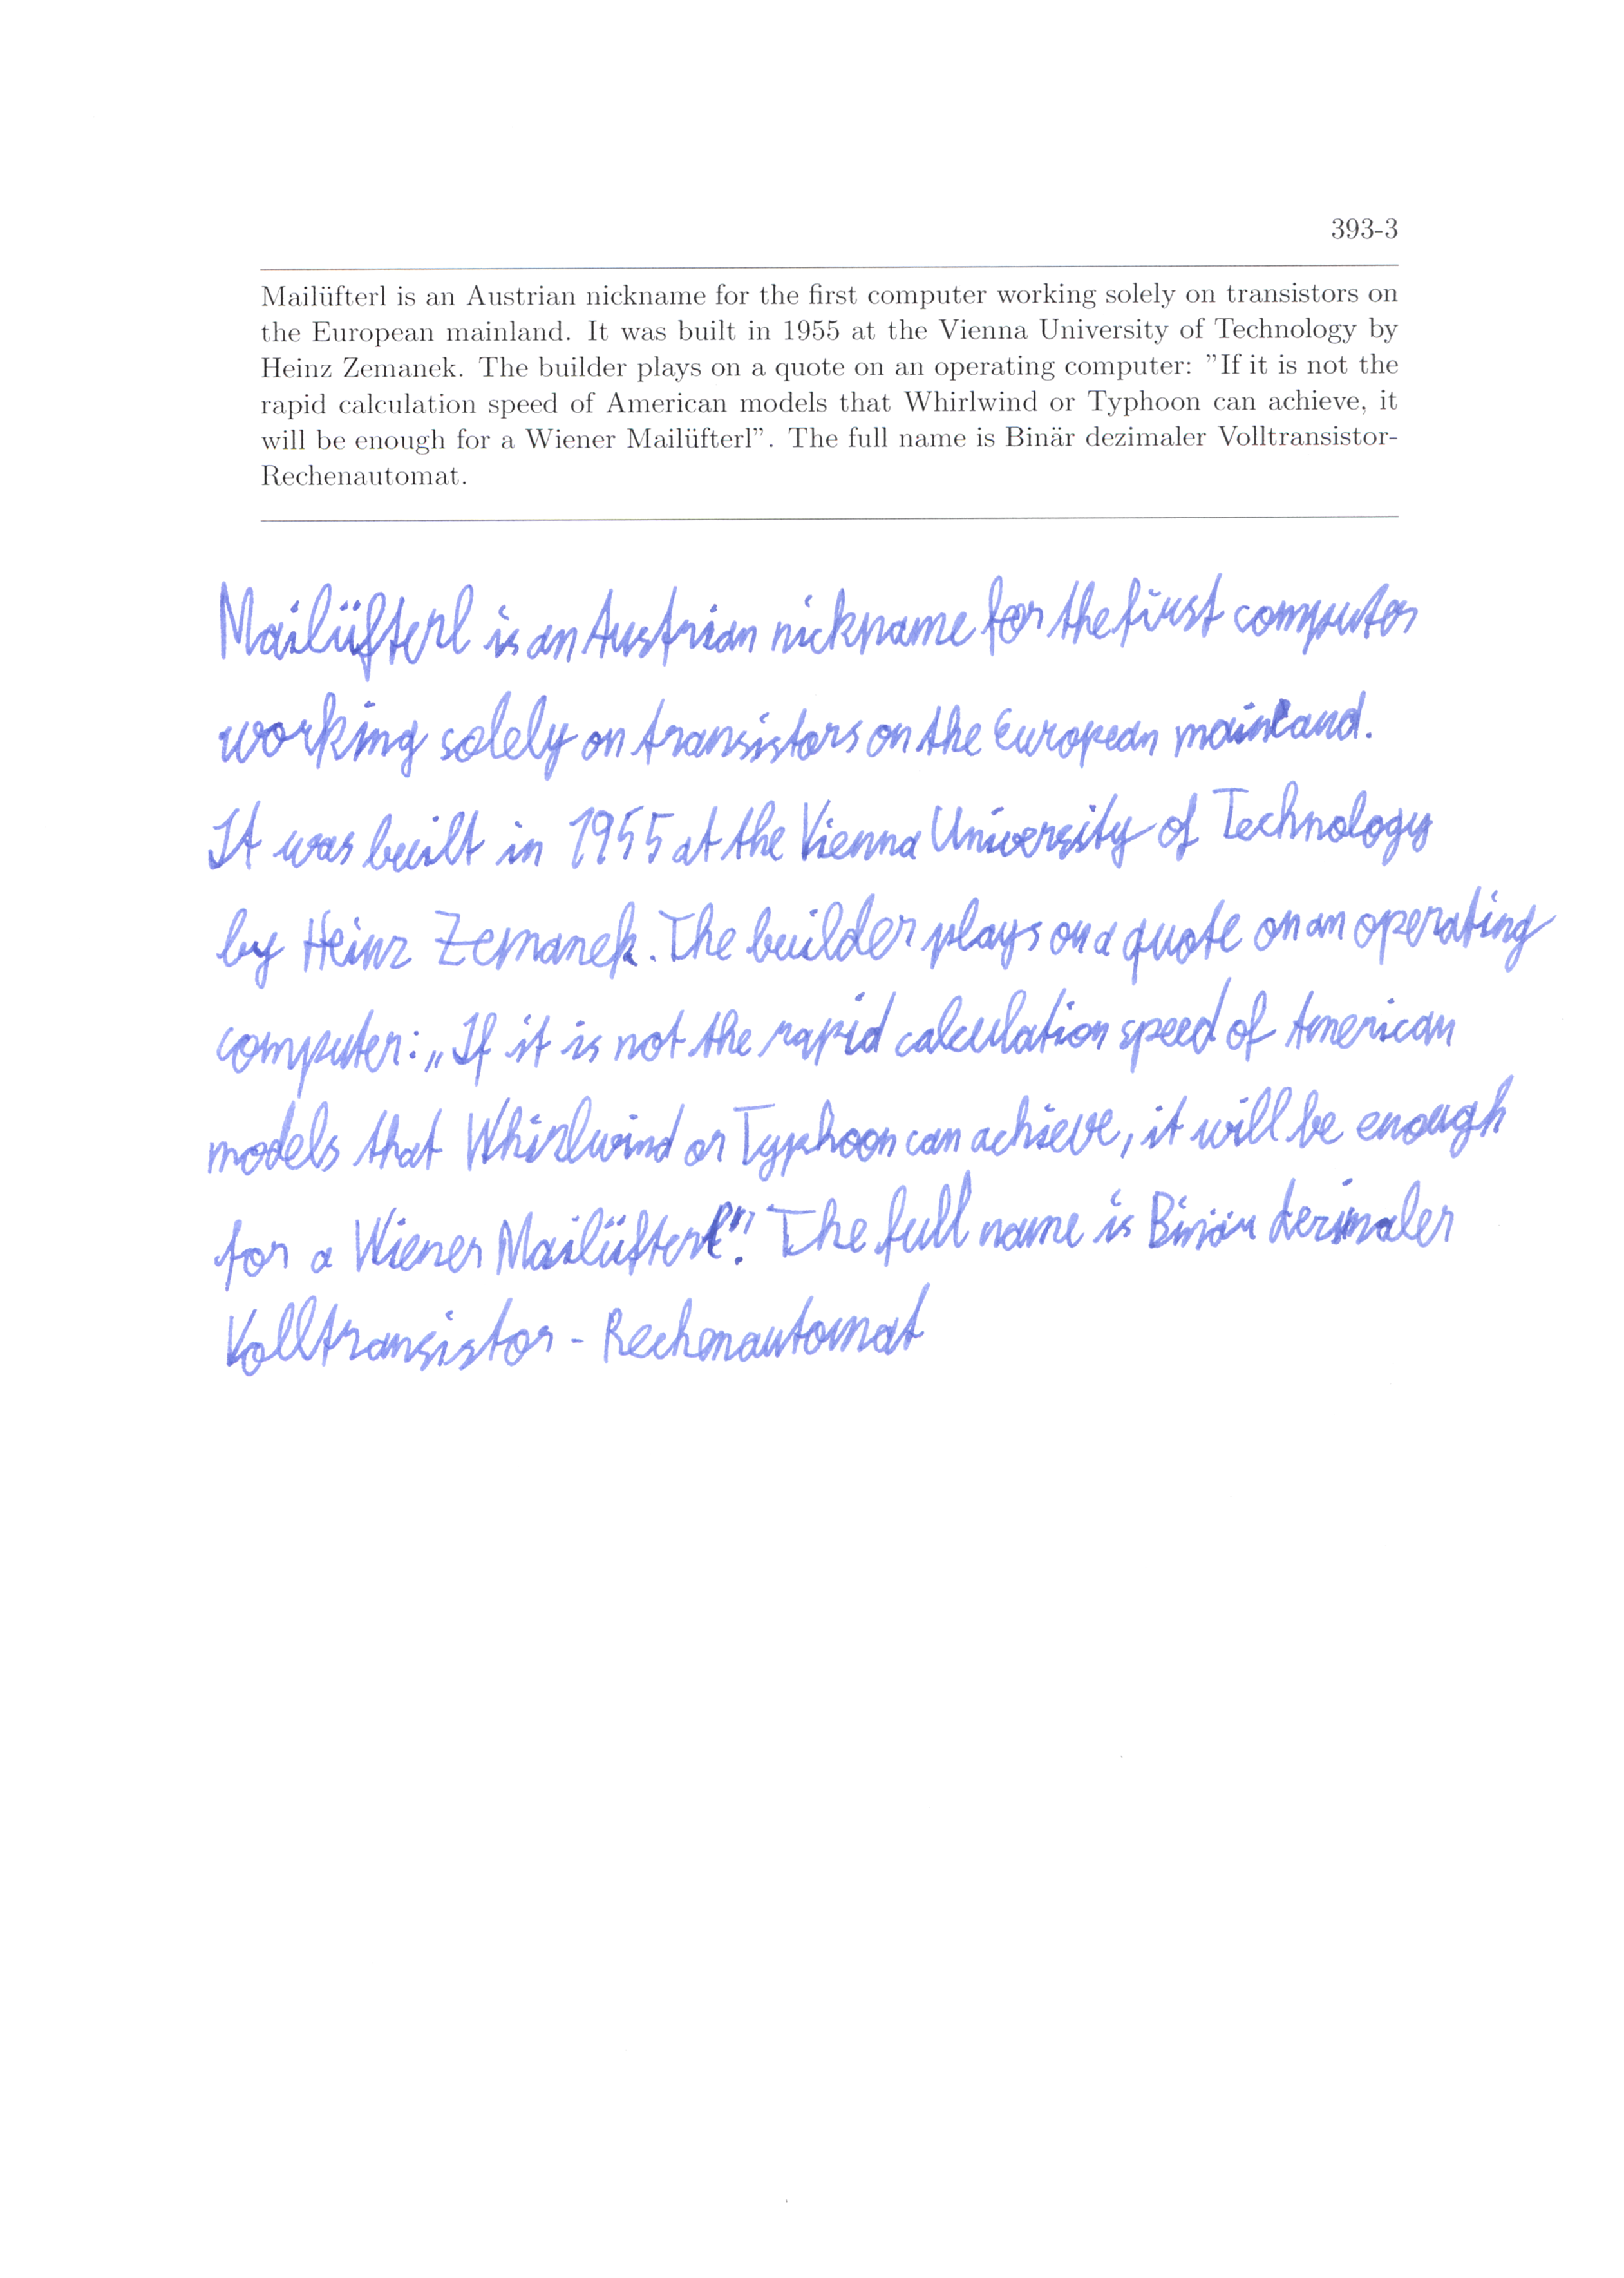 393-3
Mailüfterl is an Austrian nickname for the first computer working solely on transistors on
the European mainland. It was built in 1955 at the Vienna University of Technology by
Heinz Zemanek. The builder plays on a quote on an operating computer: ”If it is not the
rapid calculation speed of American models that Whirlwind or Typhoon can achieve, it
will be enough for a Wiener Mailüfterl”. The full name is Binär dezimaler Volltransistor-
Rechenautomat.
Mailüfterl is an Austrian nickname for the first computer
working solely on transistors on the European mainland.
It was built in 1955 at the Vienna University of Technology
by Heinz Zemanek. The builder plays on a quote on an operating
computer: „If it is not the rapid calculation speed of American
models that Whirlwind or Typhoon can achieve, it will be enough
for a Wiener Mailüfterl”. The full name is Binär dezimaler
Volltransistor - Rechenautomat